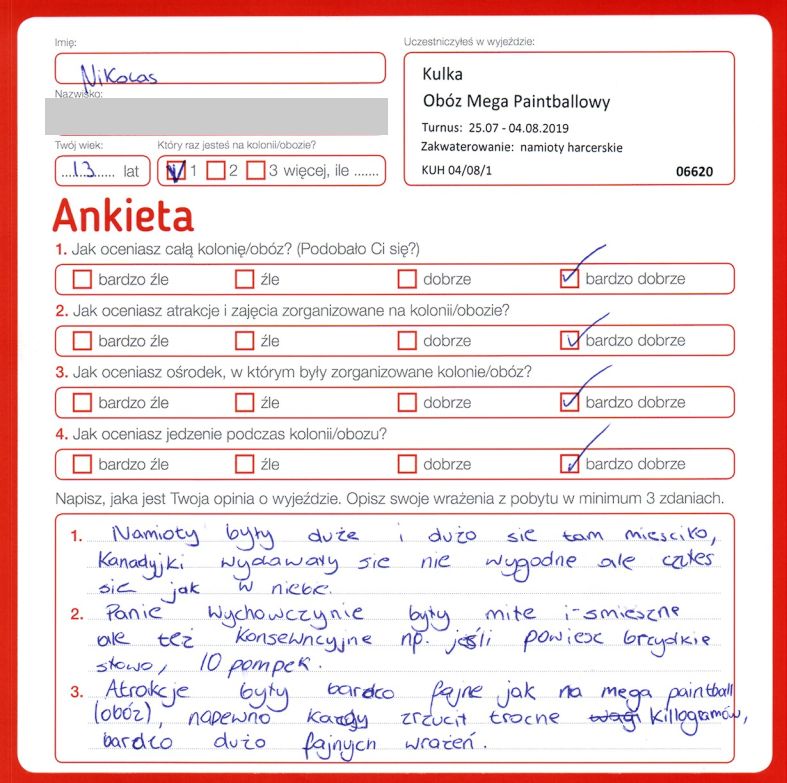 Imię:
Uczestniczyłeś w wyjeździe:
Nikolas
Kulka
Obóz Mega Paintballowy
Nazwisko:
Turnus: 25.07 - 04.08.2019
Zakwaterowanie: namioty harcerskie
KUH 04/08/1 06620
Twój wiek: Który raz jesteś na kolonii/obozie?
13 lat 1 2 3 więcej, ile .......
Ankieta
1. Jak oceniasz całą kolonię/obóz? (Podobało Ci się?)
bardzo źle źle dobrze bardzo dobrze
2. Jak oceniasz atrakcje i zajęcia zorganizowane na kolonii/obozie?
bardzo źle źle dobrze bardzo dobrze
3. Jak oceniasz ośrodek, w którym były zorganizowane kolonie/obóz?
bardzo źle źle dobrze bardzo dobrze
4. Jak oceniasz jedzenie podczas kolonii/obozu?
bardzo źle źle dobrze bardzo dobrze
Napisz, jaka jest Twoja opinia o wyjeździe. Opisz swoje wrażenia z pobytu w minimum 3 zdaniach.
1. Namioty były duże i dużo sie tam miesciło,
Kanadyjki wydawały sie nie wygodne ale czułeś
sie jak w niebie.
2. Panie Wychowczynie były miłe i smieszne
ale też konsewncyjne np. jeśli powiesz brzydkie
słowo, 10 pompek.
3. Atrakcje były bardzo fajne jak na mega paintball
(obóz), napewno każdy zrzucił trocne killogramów,
bardzo dużo fajnych wrażeń.